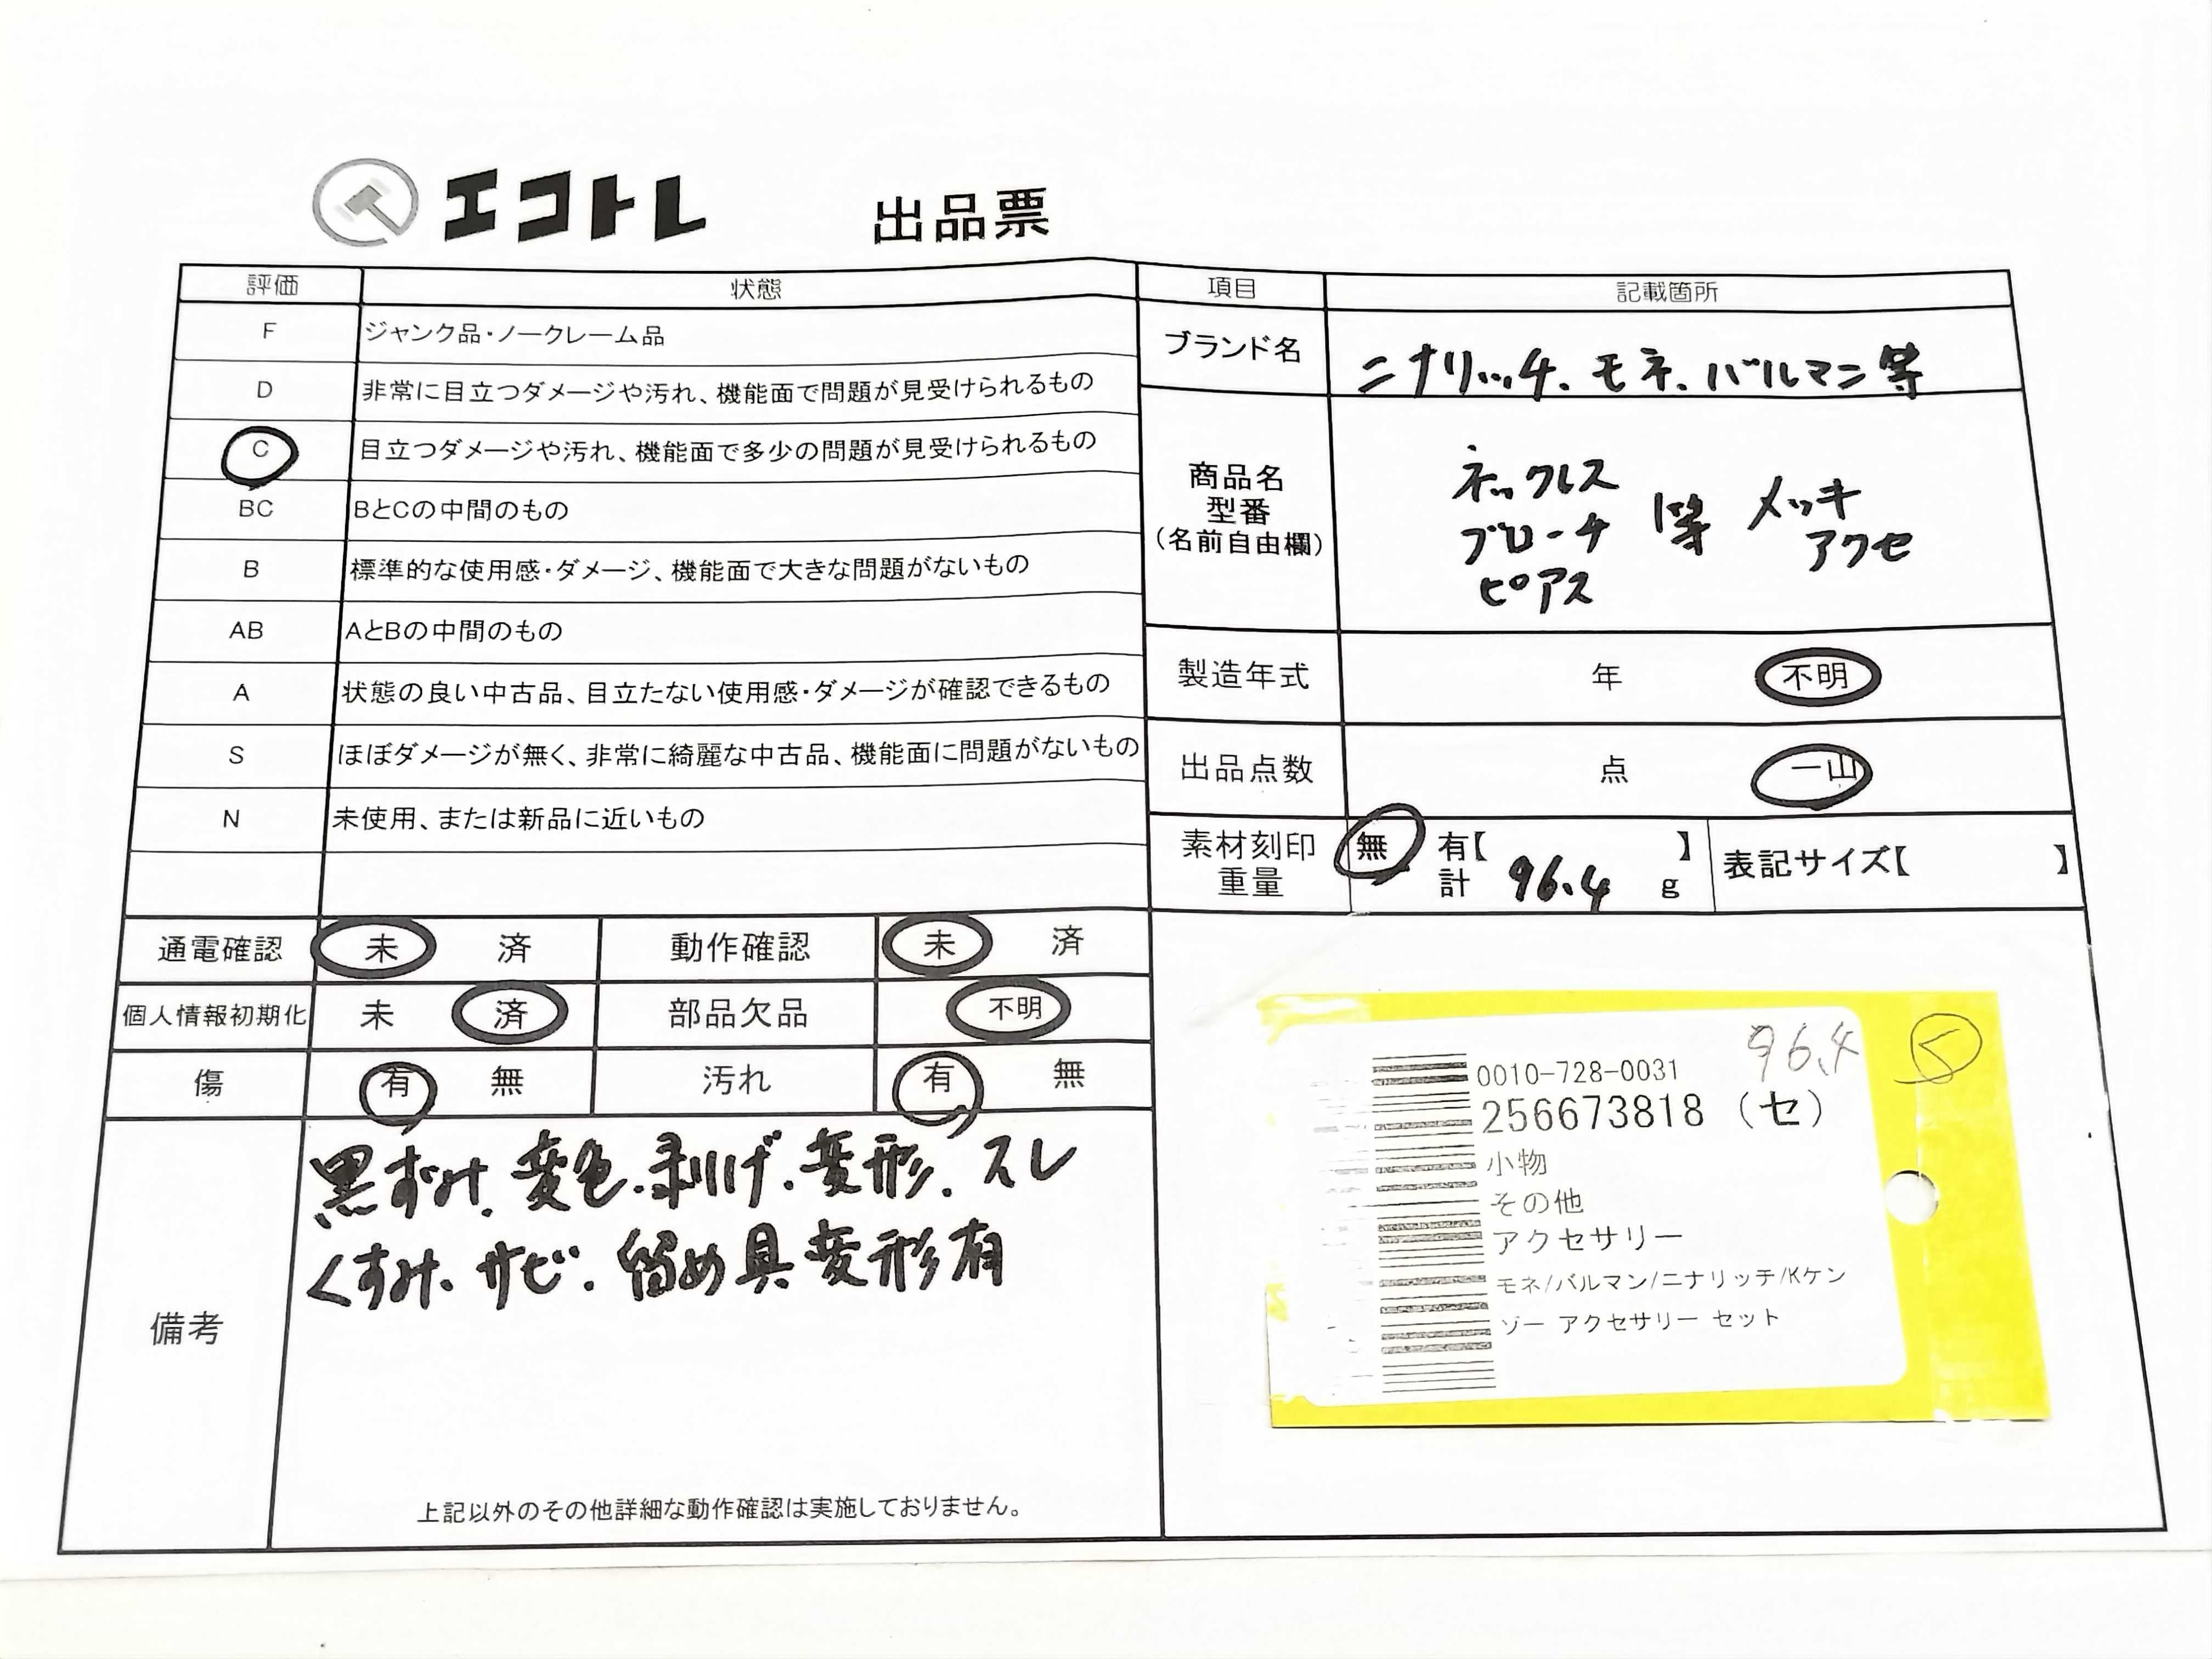 エコトレ 出品票
評価 状態
F ジャンク品・ノークレーム品
D 非常に目立つダメージや汚れ、機能面で問題が見受けられるもの
C 目立つダメージや汚れ、機能面で多少の問題が見受けられるもの
BC BとCの中間のもの
B 標準的な使用感・ダメージ、機能面で大きな問題がないもの
AB AとBの中間のもの
A 状態の良い中古品、目立たない使用感・ダメージが確認できるもの
S ほぼダメージが無く、非常に綺麗な中古品、機能面に問題がないもの
N 未使用、または新品に近いもの
通電確認 未 済 動作確認 未 済
個人情報初期化 未 済 部品欠品 不明
傷 有 無 汚れ 有 無
備考
黒ずみ、変色、剥げ、変形、スレ
くすみ、サビ、留め具変形有
上記以外のその他詳細な動作確認は実施しておりません。
項目 記載箇所
ブランド名 ニナリッチ、モネ、バルマン等
商品名
型番
(名前自由欄)
ネックレス
ブローチ 等 メッキ
ピアス アクセ
製造年式 年 不明
出品点数 点 一山
素材刻印 無 有【 】 表記サイズ【 】
重量 計 96.4 g
96.4 5
0010-728-0031
256673818 (セ)
小物
その他
アクセサリー
モネ/バルマン/ニナリッチ/Kケン
ゾー アクセサリー セット